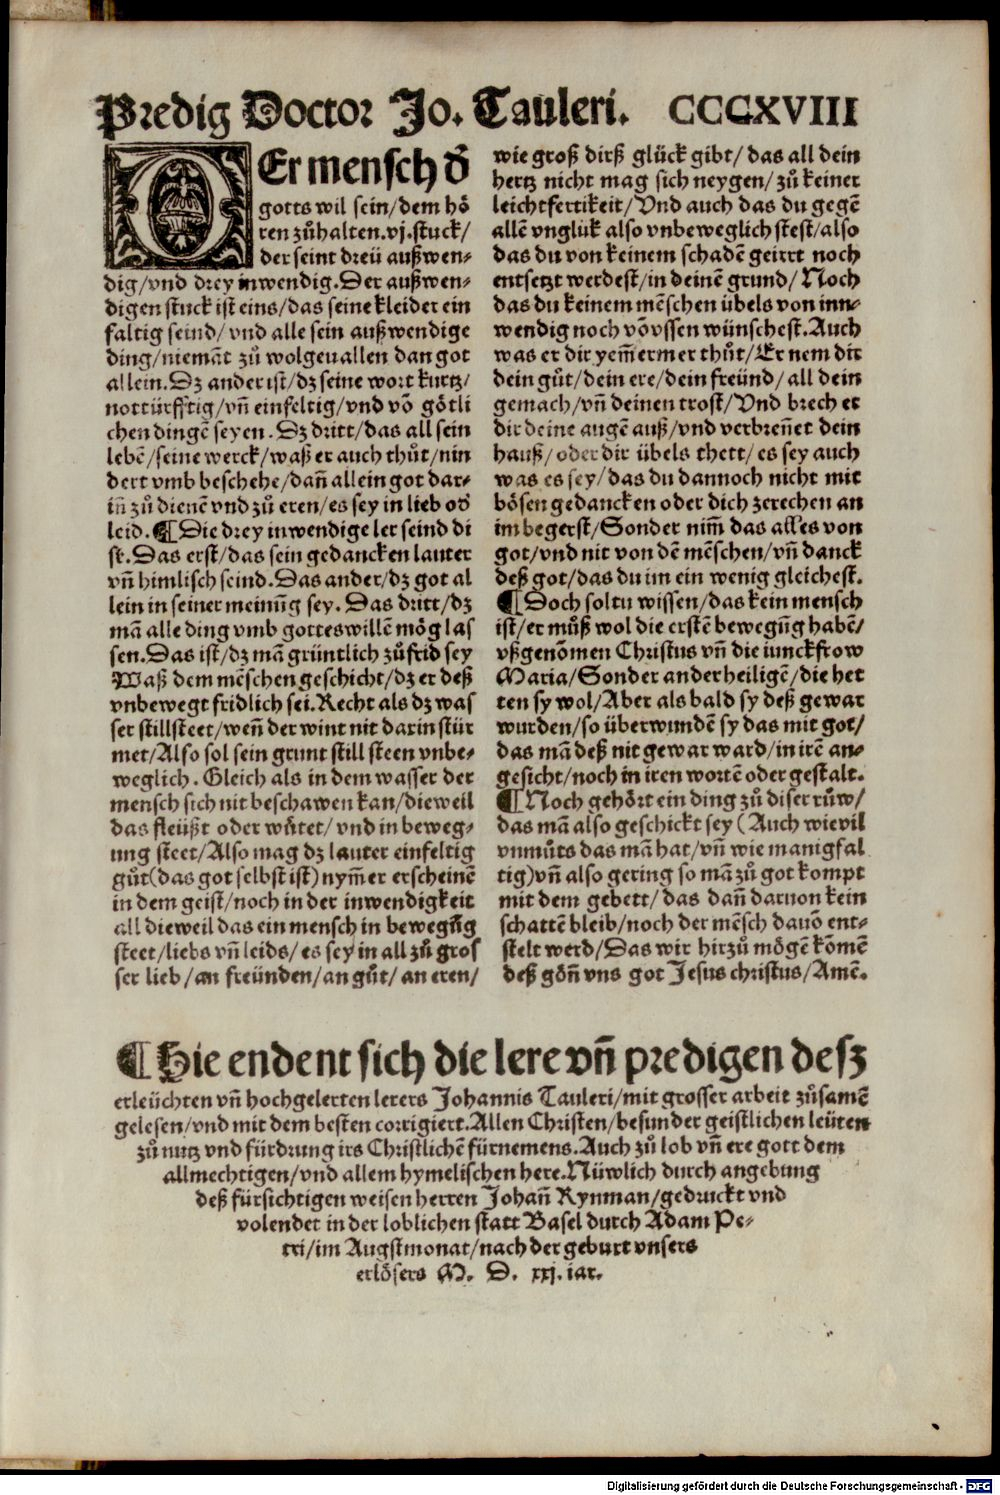 Predig Doctor Jo. Tauleri. CCCXVIII
DEr mensch d'
gotts wil sein/dem hō
ren zůhalten.vj.stuck/
der seint dreü außwen-
dig/vnd drey inwendig.Der außwen-
digen stuck ist eins/das seine kleider ein
faltig seind/vnd alle sein außwendige
ding/niemāt zů wolgeuallen dan got
allein.Dz ander ist/dz seine wort kurtz/
notturfftig/vñ einfeltig/vnd vō götli
chen dingē seyen.Dz dritt/das all sein
lebē/seine werck/waß er auch thůt/nin
dert vmb beschehe/dañ allein got dar-
iñ zů dienē vnd zů eren/es sey in lieb od'
leid.¶Die drey inwendige ler seind di
se.Das erst/das sein gedancken lauter
vñ himlisch seind.Das ander/dz got al
lein in seiner meinūg sey.Das dritt/dz
mā alle ding vmb gottes willē mög las
sen.Das ist/dz mā grüntlich zůfrid sey
Waß dem mēschen geschicht/dz er deß
vnbewegt fridlich sei.Recht als dz was
ser stillsteet/weñ der wint nit darin stür
met/Also sol sein grunt still steen vnbe-
weglich.Gleich als in dem wasser der
mensch sich nit beschawen kan/dieweil
das fleüßt oder wůtet/vnd in beweg-
ung steet/Also mag dz lauter einfeltig
gůt(das got selbst ist)nym̄er erscheinē
in dem geist/noch in der inwendigkeit
all dieweil das ein mensch in bewegūg
steet/liebs vñ leids/es sey in all zů gros
ser lieb/an freünden/an gůt/an eren/
wie groß dirß glück gibt/das all dein
hertz nicht mag sich neygen/zů keiner
leichtfertikeit/Vnd auch das du gegē
allē vnglük also vnbeweglich stest/also
das du von keinem schadē geirrt noch
entsetzt werdest/in deinē grund/Noch
das du keinem mēschen übels von inn-
wendig noch vō vssen wünschest.Auch
was er dir yem̄ermer thůt/Er nem dir
dein gůt/dein ere/dein freünd/all dein
gemach/vñ deinen trost/Vnd brech er
dir deine augē auß/vnd verbreñet dein
hauß/oder dir übels thett/es sey auch
was es sey/das du dannoch nicht mit
bösen gedancken oder dich zerechen an
im begerst/Sonder nim̄ das alles von
got/vnd nit von dē mēschen/vñ danck
deß got/das du im ein wenig gleichest.
¶Doch soltu wissen/das kein mensch
ist/er můß wol die erstē bewegūg habē/
vßgenōmen Christus vñ die iunckfrow
Maria/Sonder ander heiligē/die het
ten sy wol/Aber als bald sy deß gewar
wurden/so überwundē sy das mit got/
das mā deß nit gewar ward/in irē an-
gesicht/noch in iren wortē oder gestalt.
¶Noch gehört ein ding zů diser růw/
das mā also geschickt sey(Auch wievil
vnmůts das mā hat/vñ wie manigfal
tig)vñ also gering so mā zů got kompt
mit dem gebett/das dañ daruon kein
schattē bleib/noch der mēsch dauō ent-
stelt werd/Das wir hirzů mögē kōmē
deß göñ vns got Jesus christus/Amē.
¶Hie endent sich die lere vñ predigen desz
erleüchten vñ hochgelerten lerers Johannis Tauleri/mit grosser arbeit zůsamē
gelesen/vnd mit dem besten corrigiert.Allen Christen/besunder geistlichen leüten
zů nutz vnd fürdrung irs Christlichē fürnemens.Auch zů lob vñ ere gott dem
allmechtigen/vnd allem hymelischen here.Nüwlich durch angebung
deß fürsichtigen weisen herren Johañ Rynman/gedruckt vnd
volendet in der loblichen statt Basel durch Adam Pe-
tri/im Augstmonat/nach der geburt vnsers
erlösers M. D. xxj.iar.
Digitalisierung gefördert durch die Deutsche Forschungsgemeinschaft - DFG